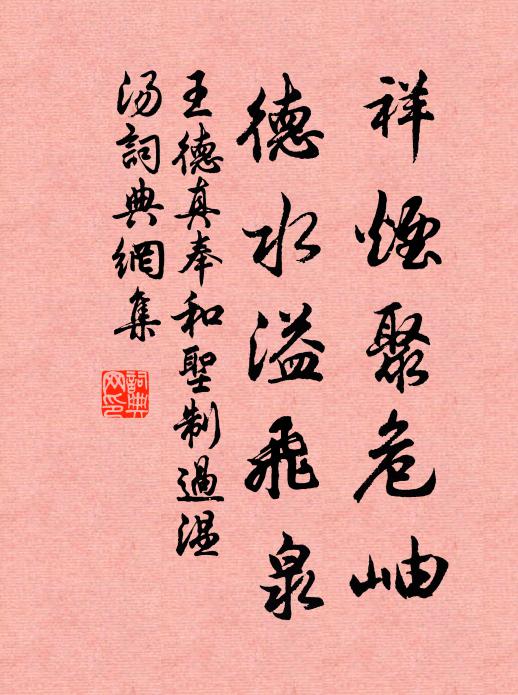 祥煙聚危岫
德水溢飛泉
王德真奉和聖制過溫
湯詞典網集
詞典
网印